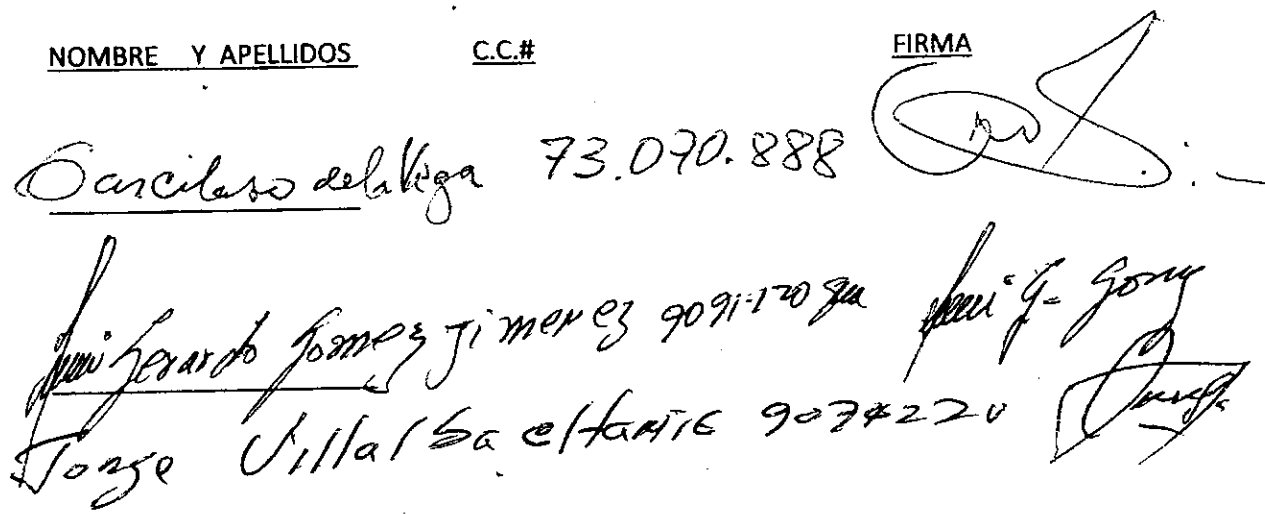 NOMBRE Y APELLIDOS C.C.# FIRMA
Garcilaso de la Vega 73.070.888
Luis Gerardo Gomez Jimenez Luis G. Gomez
Jorge Villalba 9074220